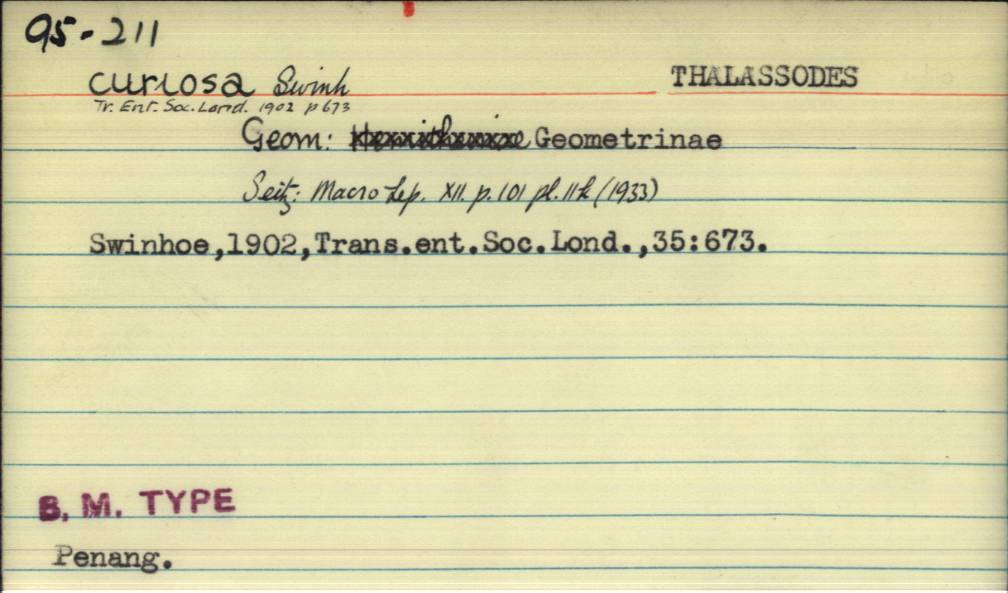 95-211
curiosa Swinh THALASSODES
Tr. Ent. Soc. Lond. 1902 p 673
Geom: Geometrinae
Seitz: Macro Lep. XII. p. 101 pl. 11k (1933)
Swinhoe,1902,Trans.ent.Soc.Lond.,35:673.
B. M. TYPE
Penang.